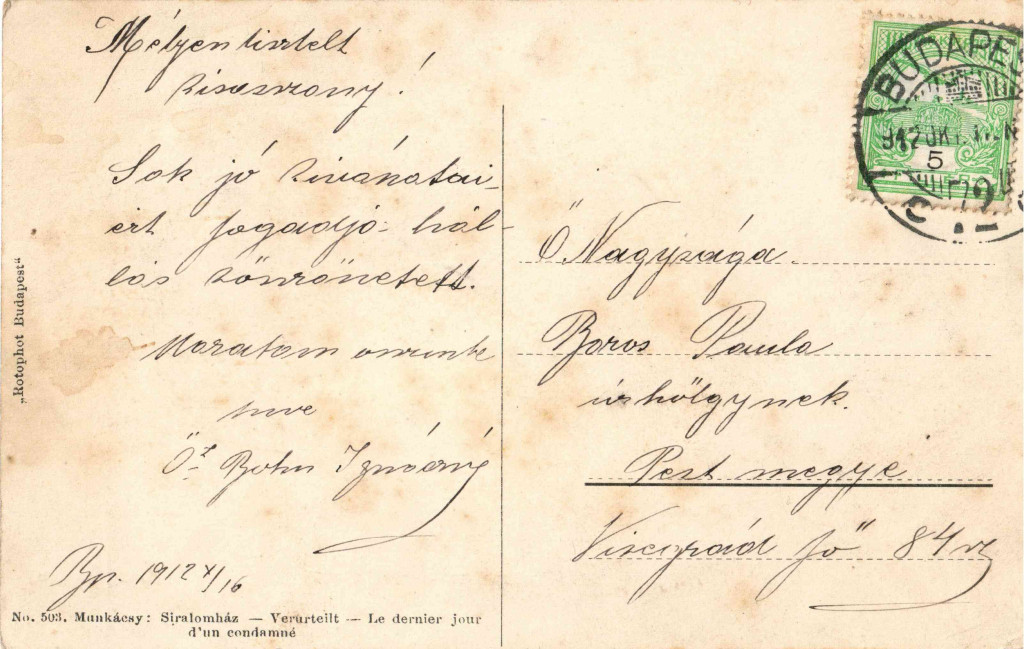 Mélyen tisztelt
kisasszony!
Sok jó kivánatai-
ért fogadja hál-
lás köszönetett.
Maradtam őszinte
híve
Özv. Bohn Ignácné
Bp. 1912 X/16
"Rotophot Budapest"
No. 503. Munkácsy: Siralomház — Verurteilt — Le dernier jour
d'un condamné
BUDAPE
912 OKT.
5
Ő Nagysága
Boros Paula
úrhölgynek.
Pest megye
Visegrád fő 84 sz